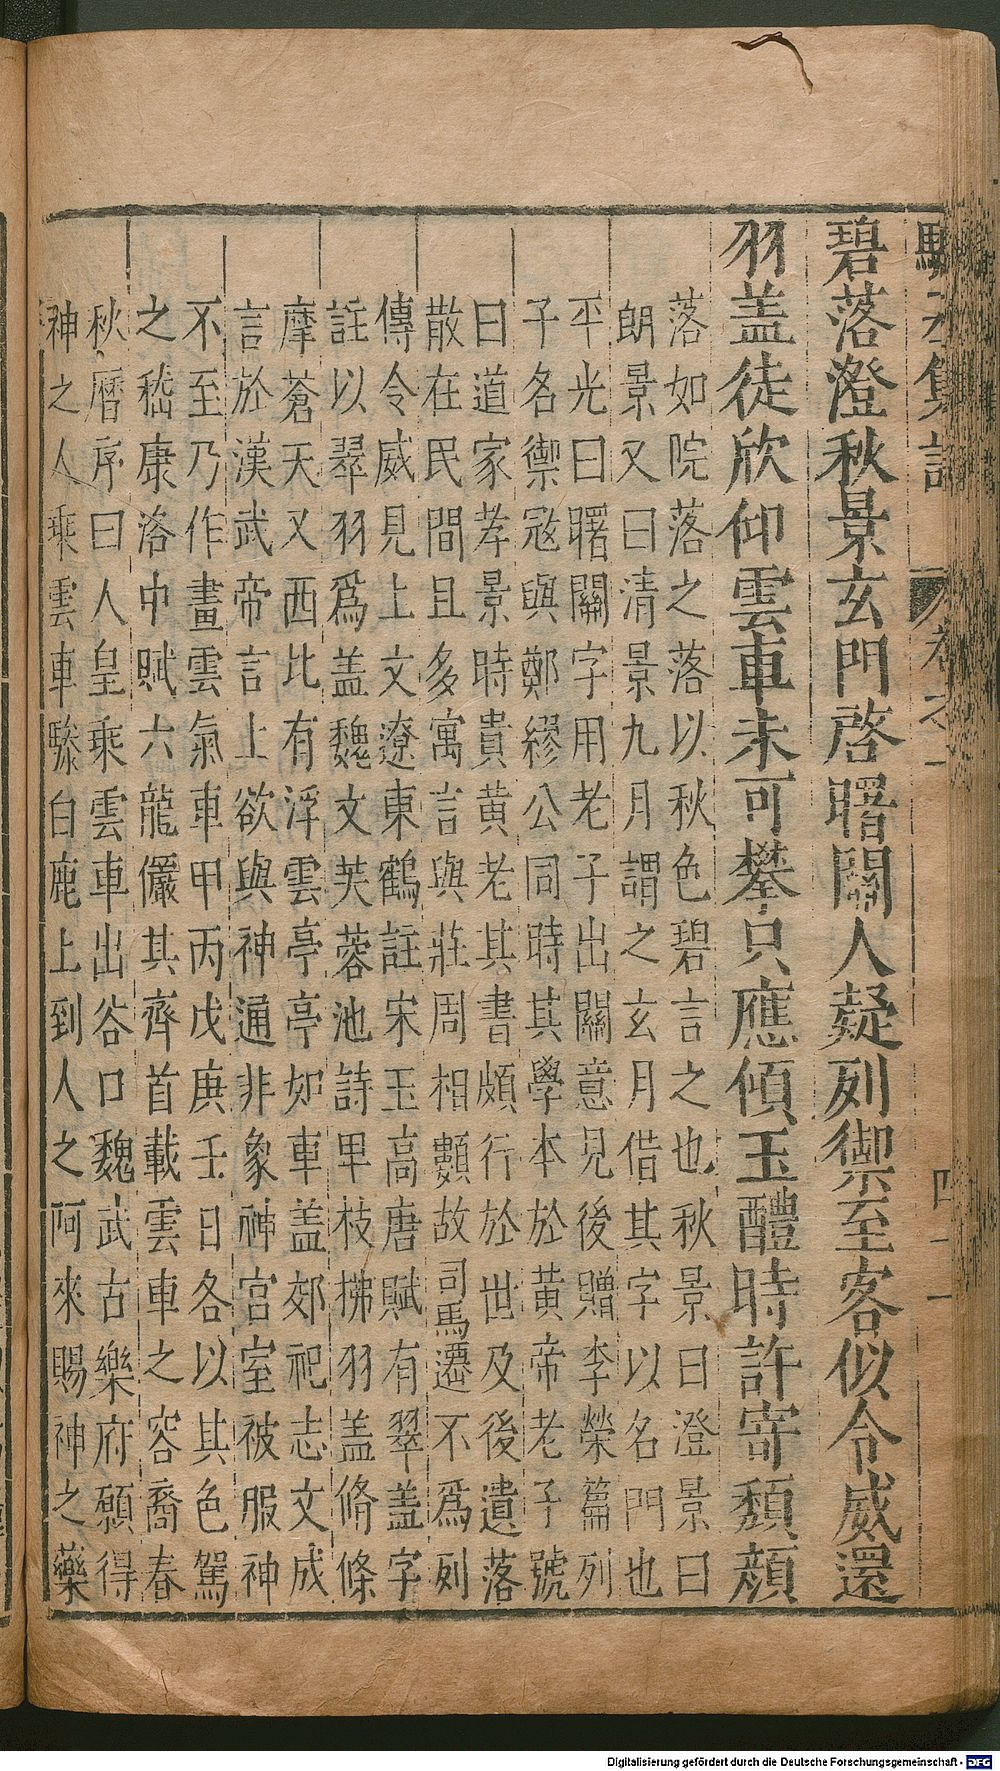 碧落澄秋景玄門啓曙關人疑列禦至客似令威還
羽盖徒欣仰雲車未可攀只應傾玉醴時許寄頽顔
落如院落之落以秋色碧言之也秋景曰澄景曰
朗景又曰清景九月謂之玄月借其字以名門也
平光曰曙關字用老子出關意見後贈李榮篇列
子名禦寇與鄭繆公同時其學本於黄帝老子號
曰道家孝景時貴黄老其書頗行於世及後遺落
散在民間且多寓言與莊周相類故司馬遷不爲列
傳令威見上文遼東鶴註宋玉高唐賦有翠盖字
註以翠羽爲盖魏文芙蓉池詩甲枝拂羽盖脩條
摩蒼天又西北有浮雲亭亭如車盖郊祀志文成
言於漢武帝言上欲與神通非象神宮室被服神
不至乃作畫雲氣車甲丙戊庚壬日各以其色駕
之嵇康洛中賦六龍儼其齊首載雲車之容裔春
秋曆序曰人皇乘雲車出谷口魏武古樂府願得
神之人乘雲車驂白鹿上到人之阿來賜神之藥
Digitalisierung gefördert durch die Deutsche Forschungsgemeinschaft - DFG